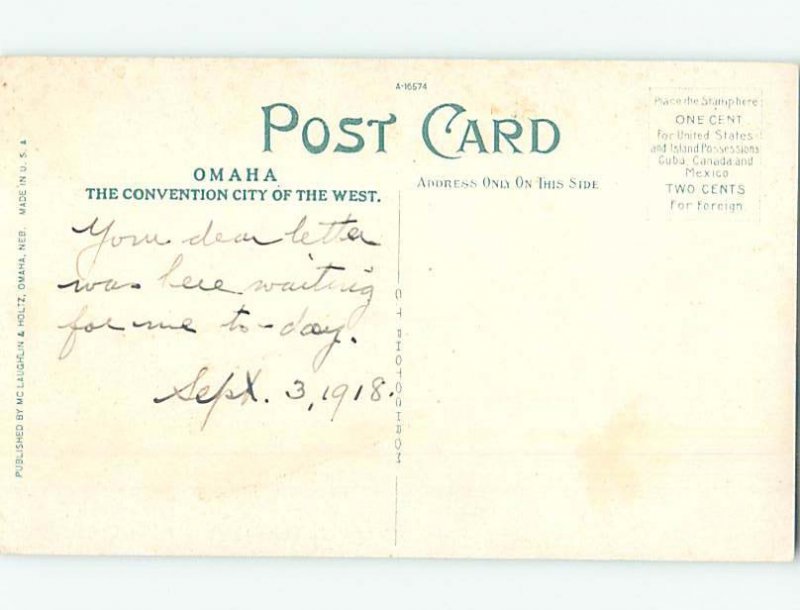 A-16574
POST CARD
Place the Stamp here
ONE CENT
For United States
and Island Possessions
Cuba, Canada and
Mexico
TWO CENTS
For Foreign.
OMAHA
THE CONVENTION CITY OF THE WEST.
ADDRESS ONLY ON THIS SIDE
Your dear letter
was here waiting
for me to-day.
Sept. 3, 1918.
C T PHOTOCHROM
PUBLISHED BY MC LAUGHLIN & HOLTZ, OMAHA, NEB. MADE IN U. S. A